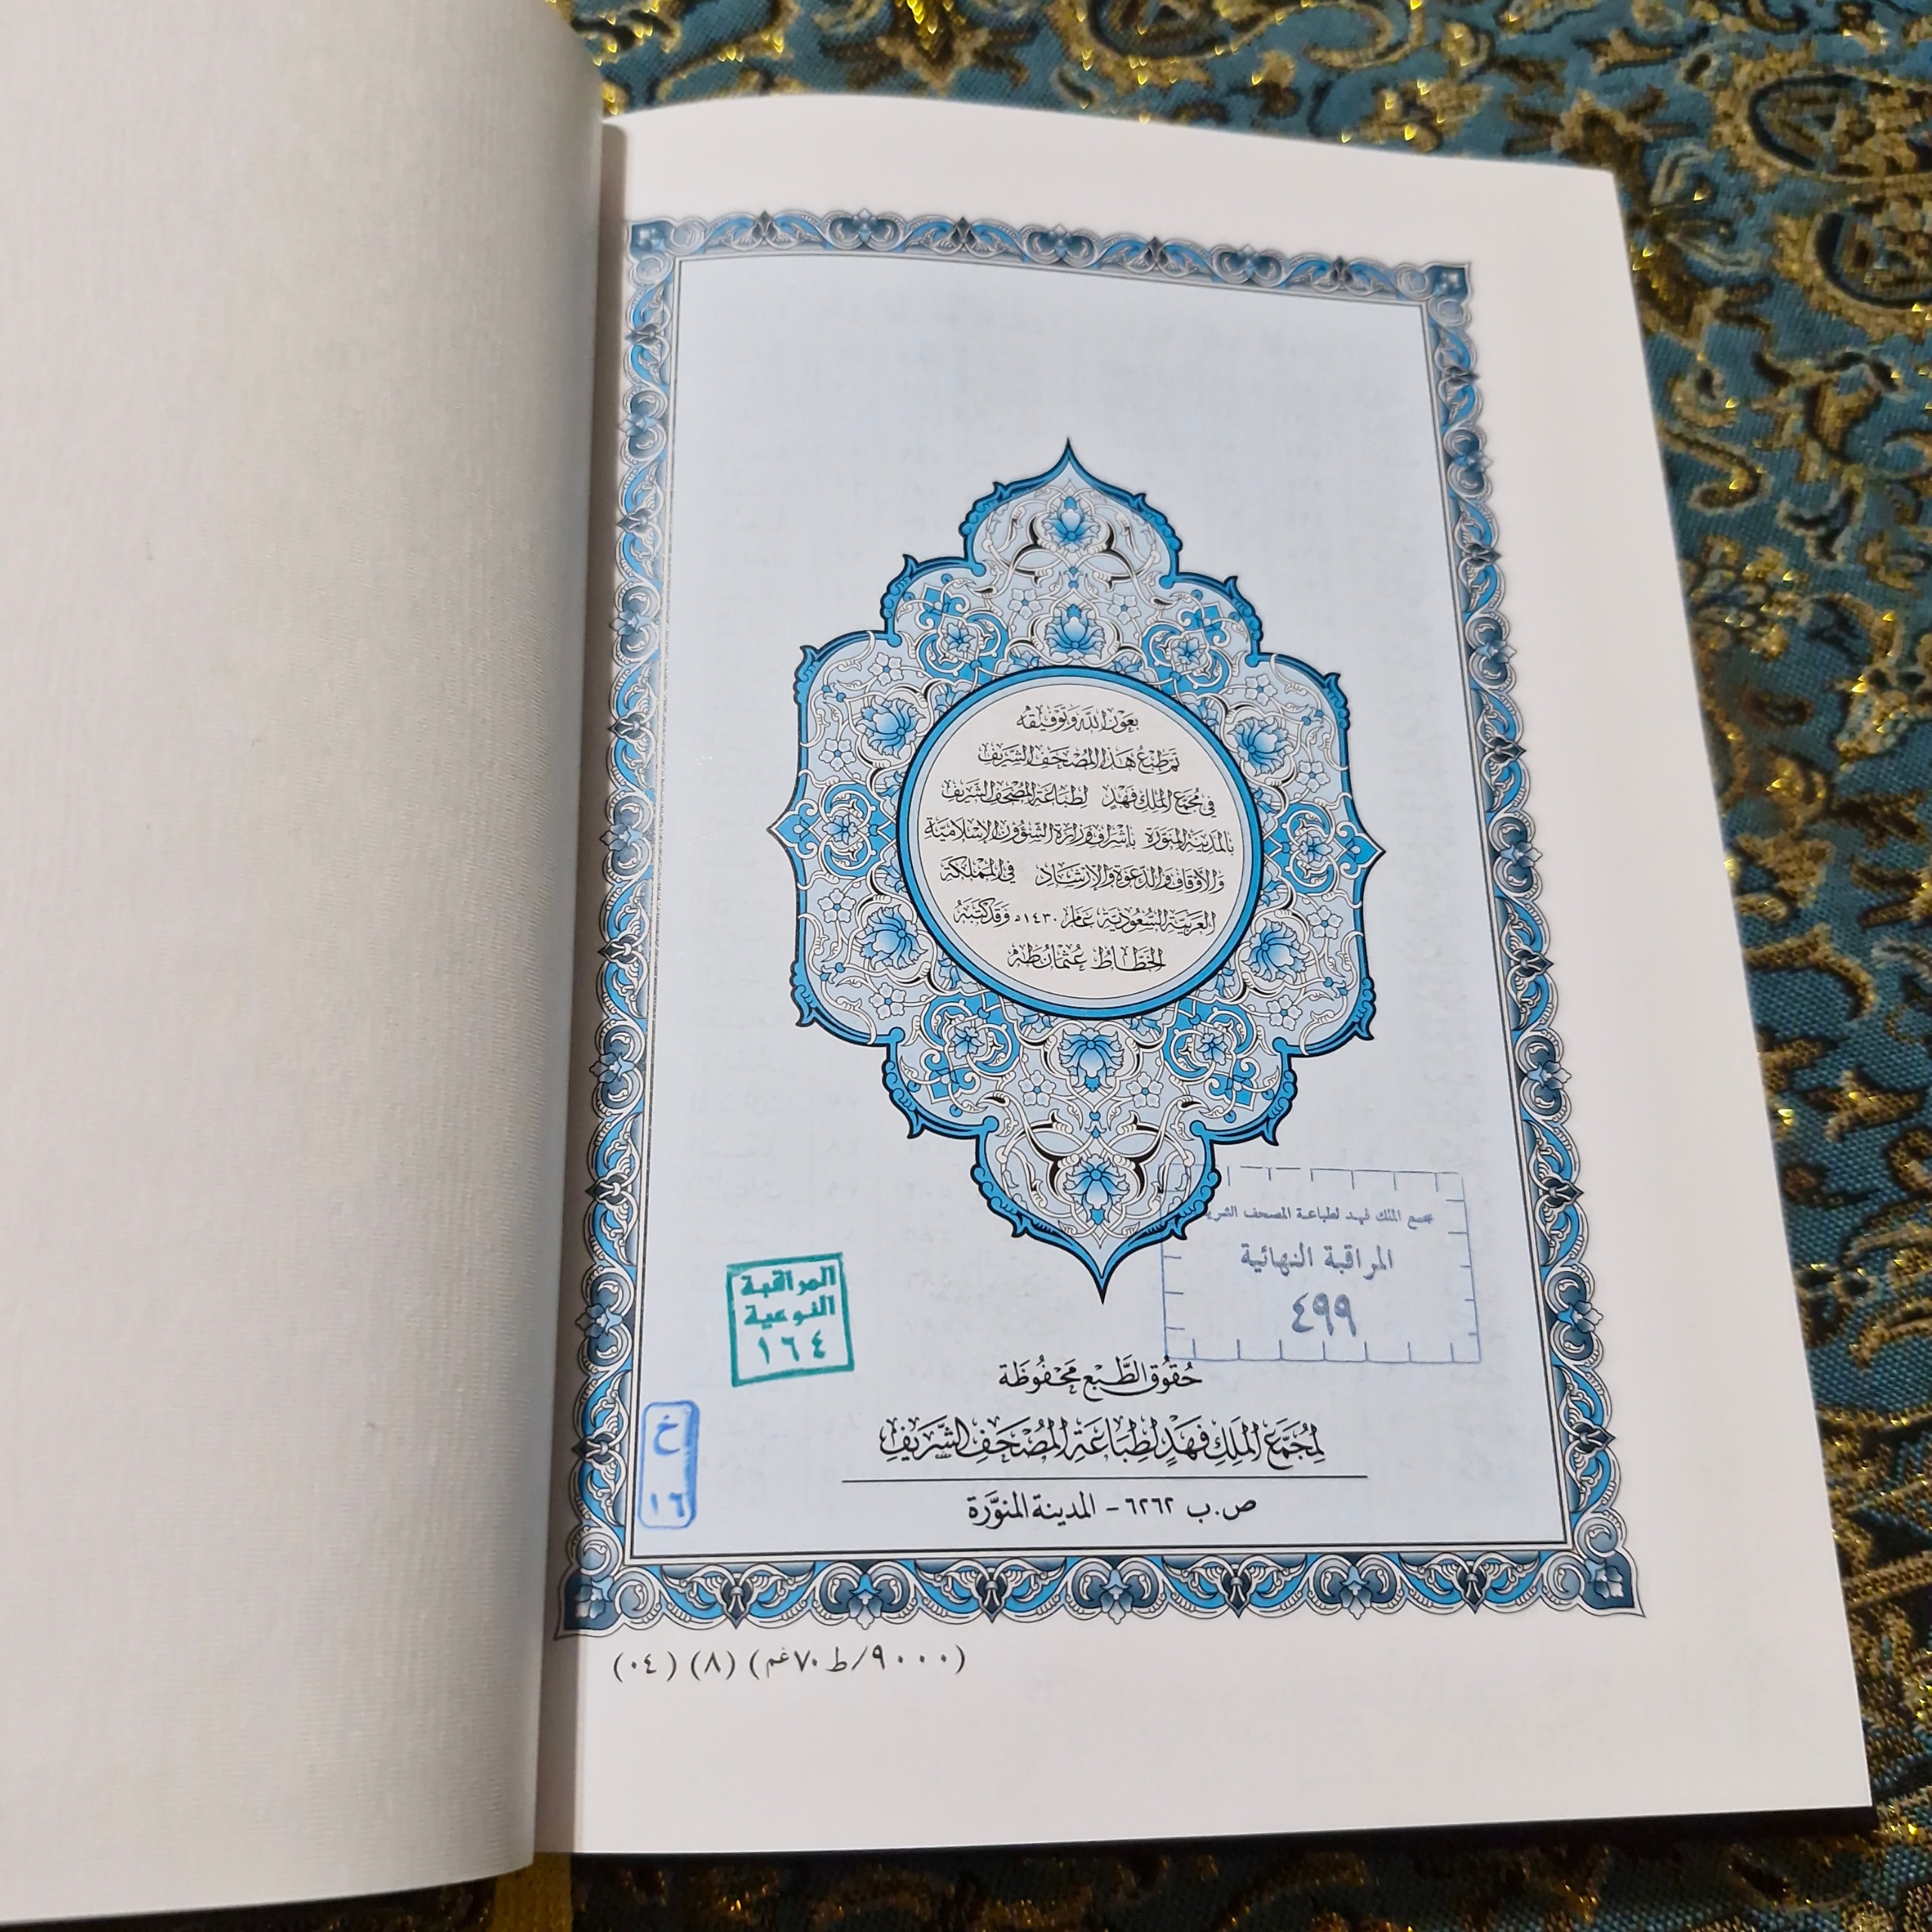 بِعَوْنِ اللَّهِ وَتَوْفِيقِهِ
تَمَّ طَبْعُ هَذَا المُصْحَفِ الشَّرِيفِ
فِي مُجَمَّعِ المَلِكِ فَهْدٍ لِطِبَاعَةِ المُصْحَفِ الشَّرِيفِ
بِالمَدِينَةِ المُنَوَّرَةِ بِإِشْرَافِ وِزَارَةِ الشُّؤُونِ الإِسْلَامِيَّةِ
وَالأَوْقَافِ وَالدَّعْوَةِ وَالإِرْشَادِ فِي المَمْلَكَةِ
العَرَبِيَّةِ السُّعُودِيَّةِ عَامَ ١٤٣٠هـ وَقَدْ كَتَبَهُ
الخَطَّاطُ عُثْمَان طٰهٰ
مجمع الملك فهد لطباعة المصحف الشريف
المراقبة النهائية
٤٩٩
المراقبة
النوعية
١٦٤
حُقُوقُ الطَّبْعِ مَحْفُوظَة
لِمُجَمَّعِ المَلِكِ فَهْدٍ لِطِبَاعَةِ المُصْحَفِ الشَّرِيفِ
خ
١٦
ص.ب ٦٢٦٢ - المدينة المنوَّرة
(٩٠٠٠/ط ٧٠غم) (٨) (٠٤)